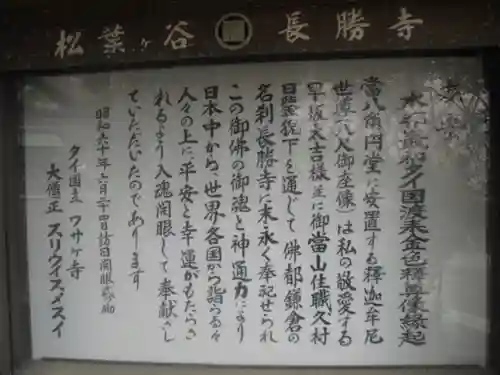 松葉ヶ谷 長勝寺
タイ国渡来金色釈迦像縁起
当八角円堂に安置する釈迦牟尼
世尊(八人御座像)は私の敬愛する
早坂太吉様並に御當山住職久村
日鑒猊下を通じて佛都鎌倉の
名刹長勝寺に末永く奉祀せられ
この御佛の御魂と神通力により
日本中から、世界各国から詣らる々
人々の上に平安と幸運がもたらさ
れるより入魂開眼して奉献さし
ていただいたのであります
昭和六十年六月二十四訪日開眼
タイ国立 ワサケ寺
大僧正 スリウイスメスイ